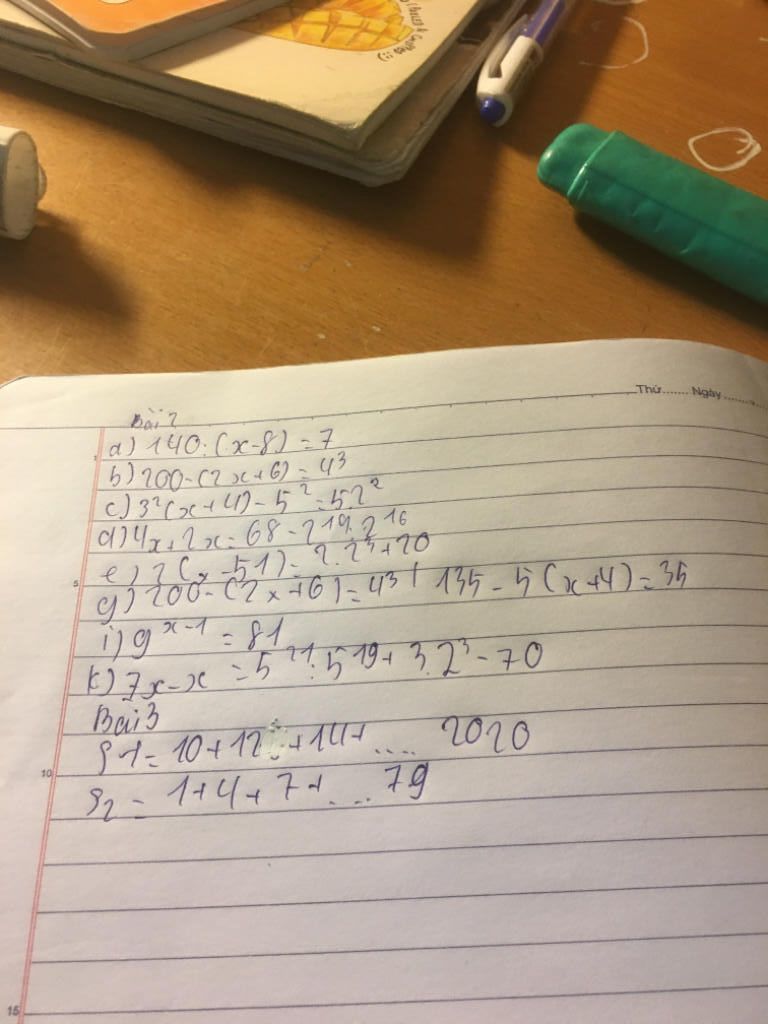 Cuties :)
Thứ....... Ngày.......
Bài 2
a) 140:(x-8)=7
b) 200-(2x+6)=4³
c) 3²(x+4)-5²=5.2²
d) 4x+2x=68-2¹⁹:2¹⁶
e) 2(x-51)=2.2³+20
g) 200-(2x+6)=4³ / 135-5(x+4)=35
i) 9ˣ⁻¹=81
k) 7x-x=5²¹:5¹⁹+3.2³-70
Bài 3
S1=10+12+14+.... 2020
S2=1+4+7+....79
5
10
15